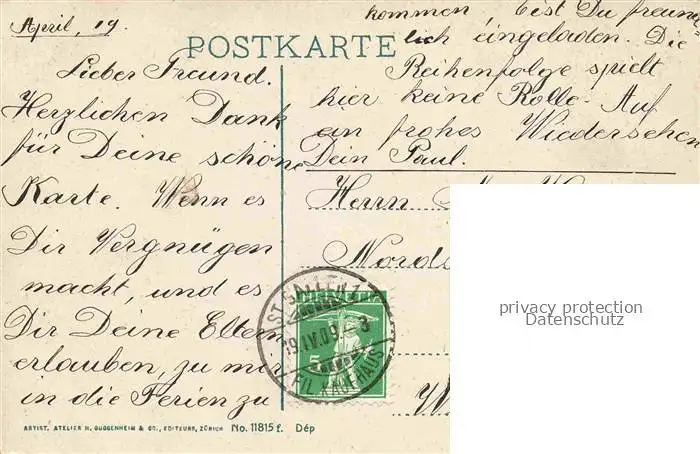 April, 19.
POSTKARTE
Lieber Freund.
Herzlichen Dank
für Deine schöne
Karte. Wenn es
Dir Vergnügen
macht, und es
Dir Deine Eltern
erlauben, zu mir
in die Ferien zu
kommen bist Du freund-
lich eingeladen. Die
Reihenfolge spielt
hier keine Rolle. Auf
ein frohes Wiedersehen
Dein Paul.
Herrn
ST. GALLEN 1
19.IV.09. - 3
FIL. KAUFHAUS
5
privacy protection
Datenschutz
ARTIST. ATELIER H. GUGGENHEIM & CO., EDITEURS, ZÜRICH No. 11815 f. Dép